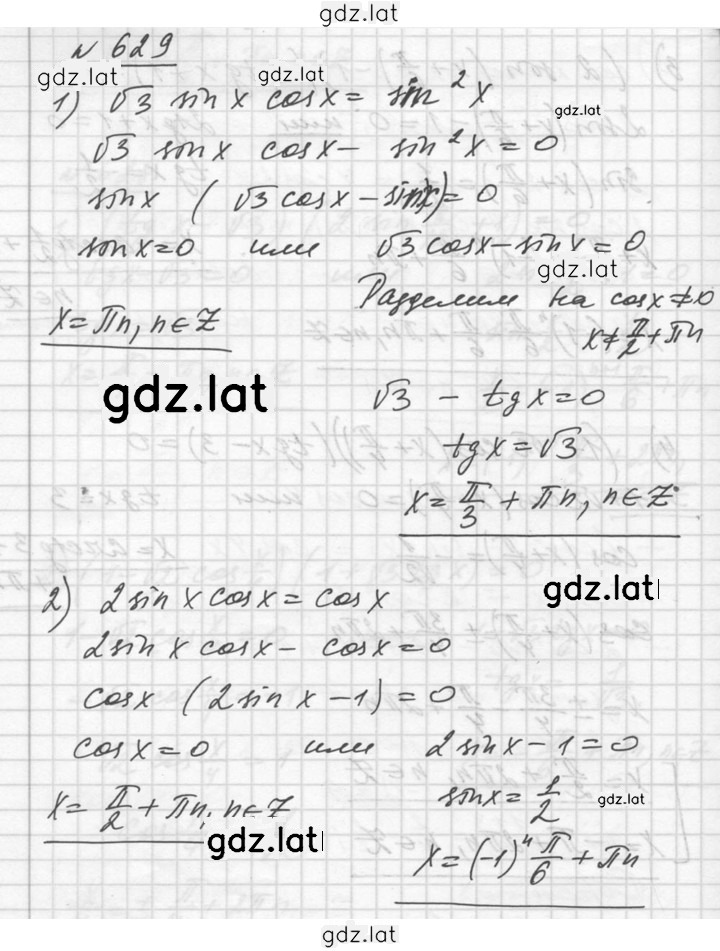 gdz.lat
N 629
gdz.lat gdz.lat
1) √3 sin x cos x = sin²x
gdz.lat
√3 sin x cos x - sin²x = 0
sin x (√3 cos x - sin x) = 0
sin x = 0 или √3 cos x - sin x = 0
gdz.lat
Разделим на cos x ≠ 0
x = πn, n ∈ Z x ≠ π/2 + πn
gdz.lat
√3 - tg x = 0
tg x = √3
x = π/3 + πn, n ∈ Z
gdz.lat
2) 2 sin x cos x = cos x
2 sin x cos x - cos x = 0
cos x (2 sin x - 1) = 0
cos x = 0 или 2 sin x - 1 = 0
x = π/2 + πn, n ∈ Z sin x = 1/2
gdz.lat
gdz.lat
x = (-1)ⁿ π/6 + πn
gdz.lat